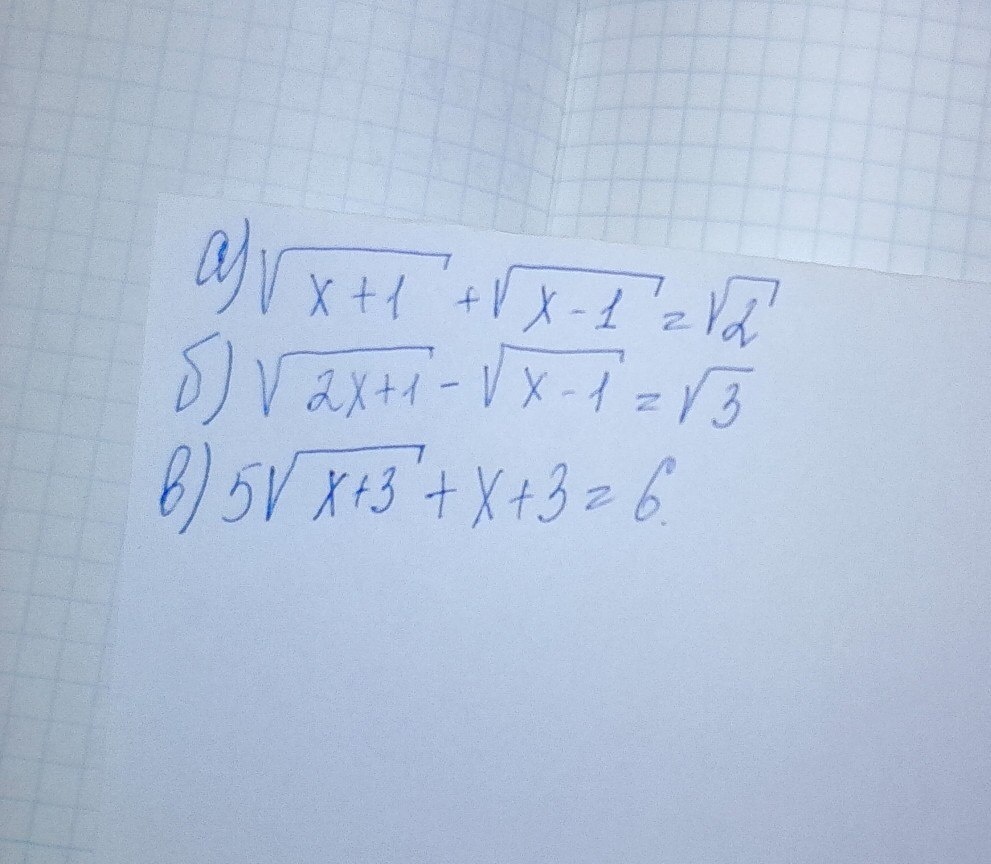 а) √(x+1) + √(x-1) = √2
б) √(2x+1) - √(x-1) = √3
в) 5√(x+3) + x+3 = 6.